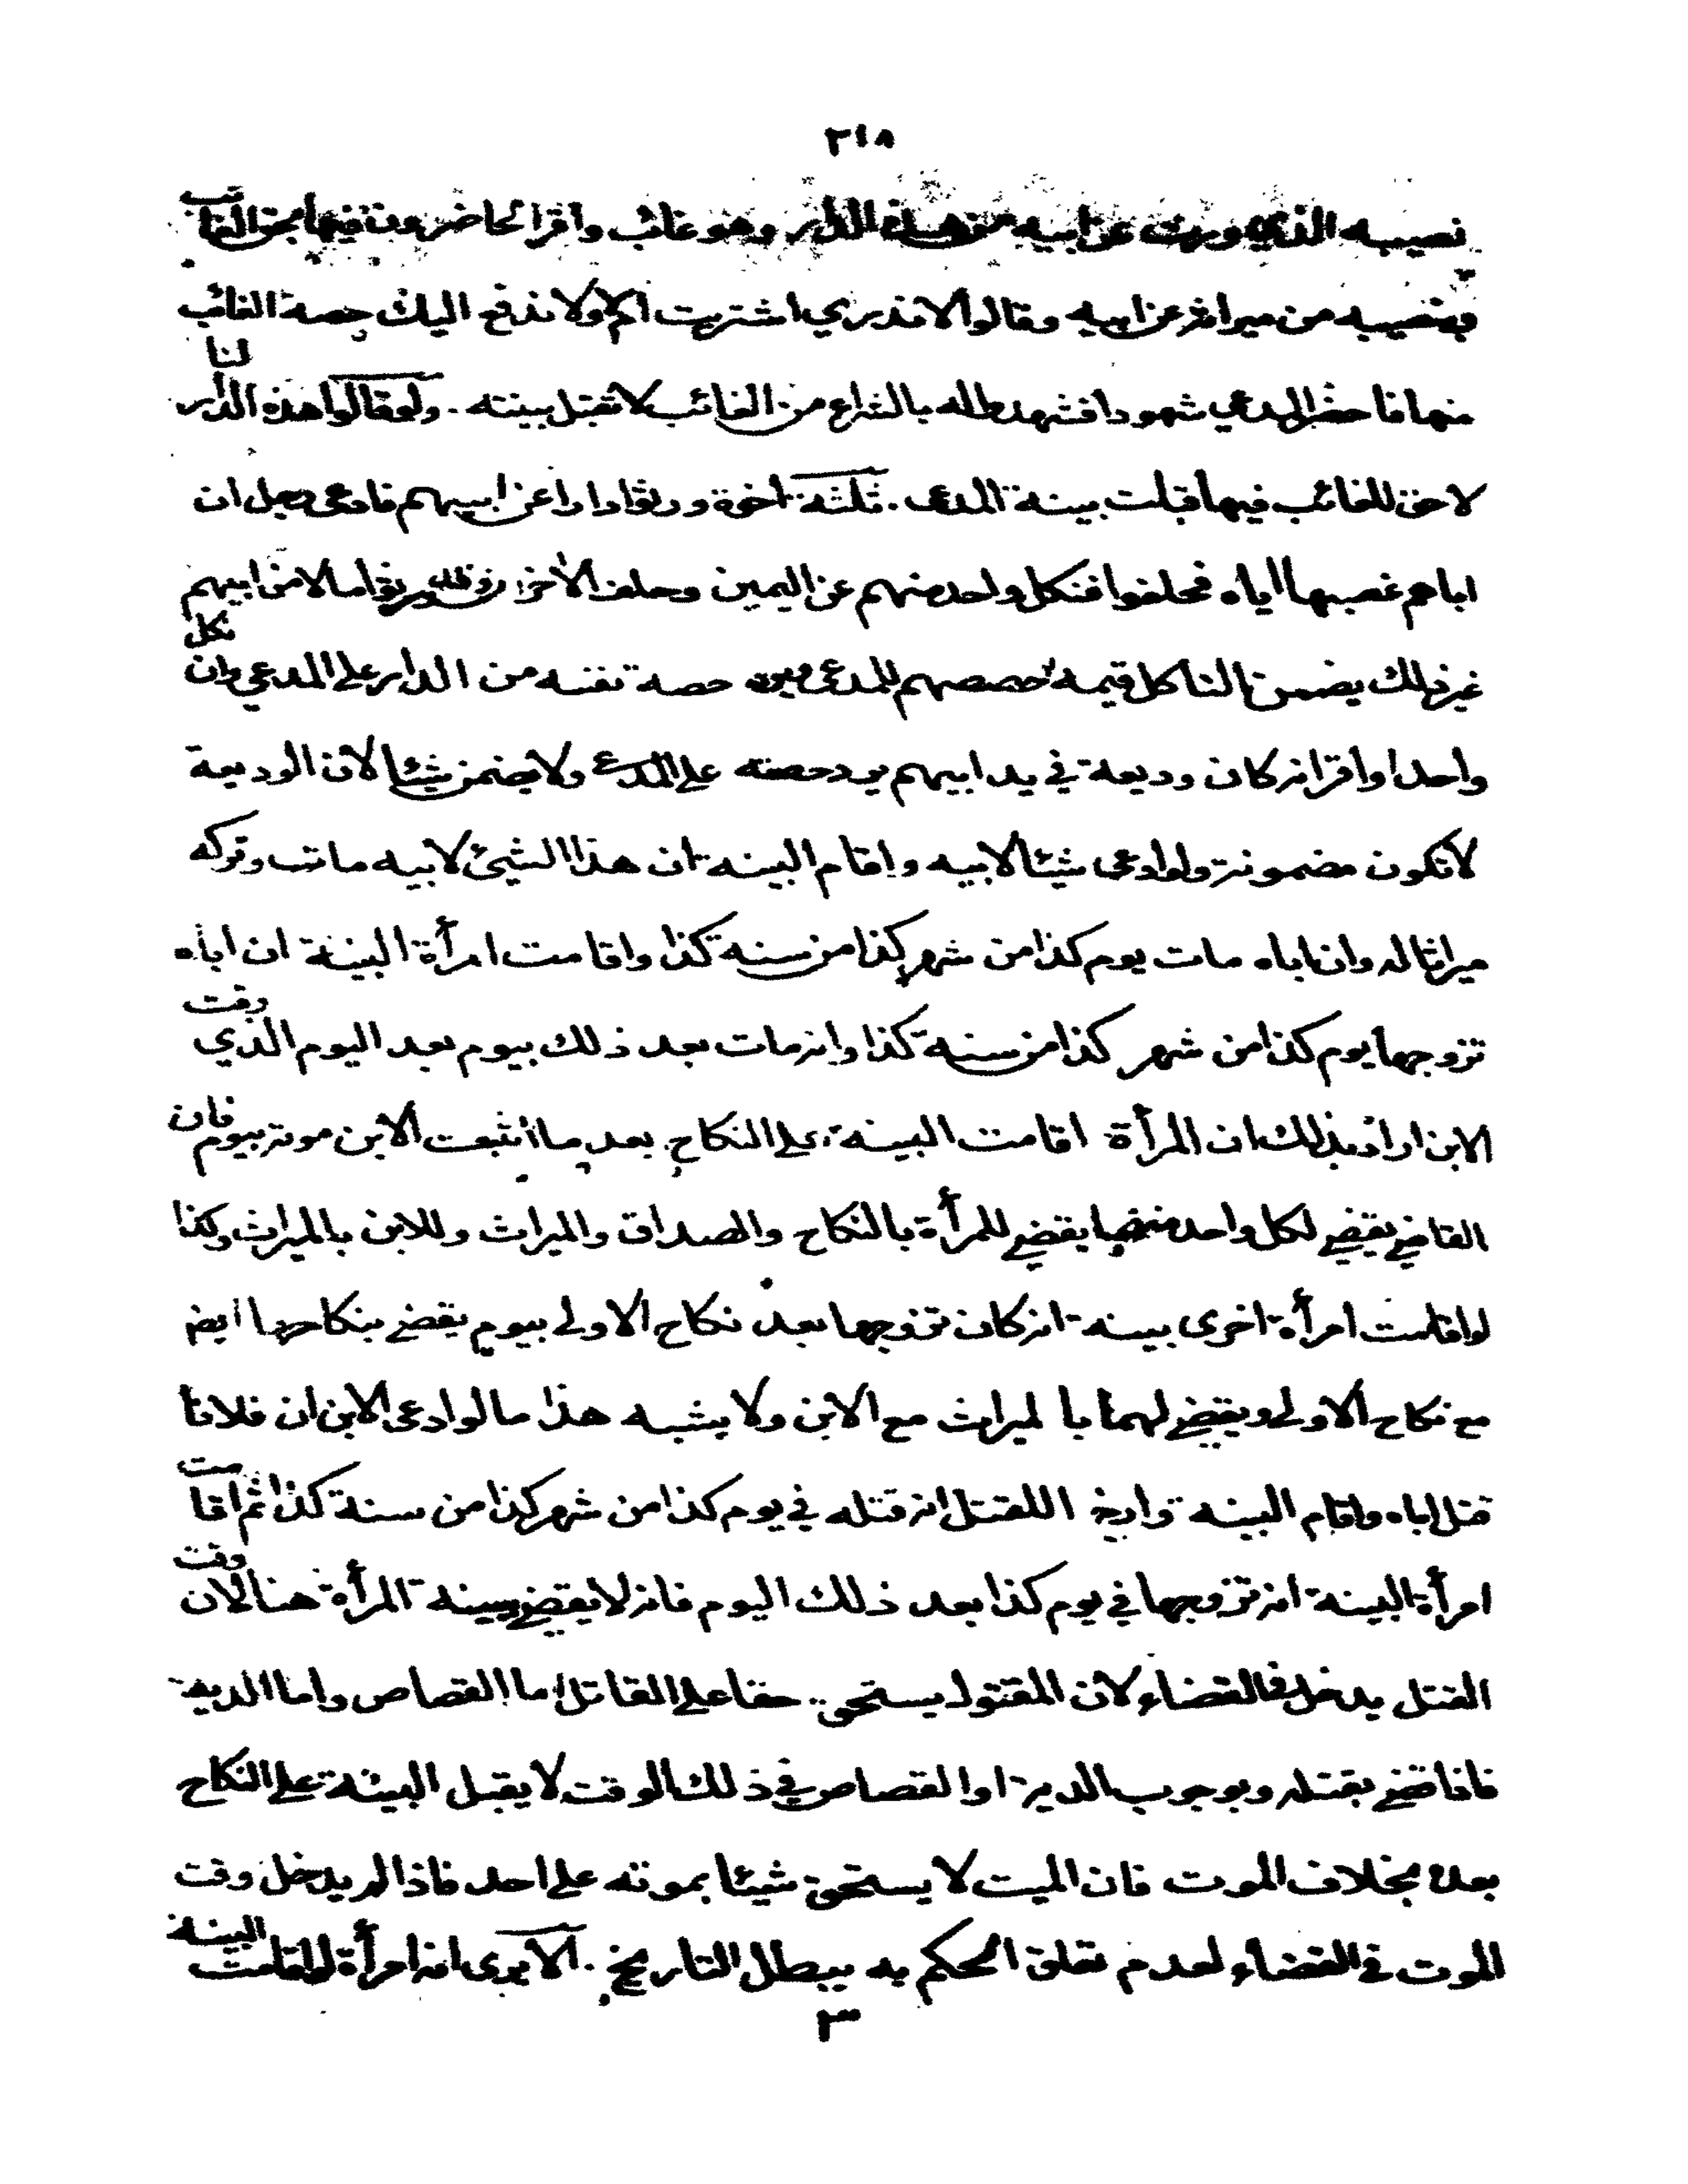 ٢١٨
نصيبه الذي ورث عن ابيه من هذه الدار وهو غائب واقر الحاضرون فيها بحق الغائب
ونصيبه من ميراثه عن ابيه وقالوا لا ندري اشتريت ام لا ولا ندفع اليك حصة الغائب
منها فاحضر المدعي شهودا فشهدوا له بالشراء من الغائب لا تقبل بينته . ولو قالوا هذه الدار لنا
لا حق للغائب فيها قبلت بينة المدعى . ثلثة اخوة ورثوا دارا عن ابيهم فادعى رجل ان
اباهم غصبها اياه فحلفوا فنكل واحد منهم عن اليمين وحلف الآخران وقد ورثوا مالا من ابيهم
غير ذلك يضمن الناكل قيمة حصصهم للمدعى ويرد حصة نفسه من الدار على المدعي وان نكل
واحد او اقر انه كان وديعة في يد ابيهم يرد حصته على المدعى ولا يضمن شيئا لان الوديعة
لا تكون مضمونة ولو ادعى شيئا لابيه واقام البينة ان هذا الشيئ لابيه مات وتركه
ميراثا له وان اباه مات يوم كذا من شهر كذا من سنة كذا واقامت امرأة البينة ان اباه
تزوجها يوم كذا من شهر كذا من سنة كذا وانه مات بعد ذلك بيوم بعد اليوم الذي وقت
الابن اراد بذلك ان المرأة اقامت البينة على النكاح بعد ما اثبت الابن موته بيوم فان
القاضي يقضي لكل واحد منهما يقضي للمرأة بالنكاح والصداق والميراث وللابن بالميراث وكذا
لو اقامت امرأة اخرى بينة انه كان تزوجها بعد نكاح الاولى بيوم يقضى بنكاحها ايضا
مع نكاح الاولى ويقضي لهما بالميراث مع الابن ولا يشبه هذا ما لو ادعى الابن ان فلانا
قتل اباه واقام البينة وارخ اللقتل انه قتله في يوم كذا من شهر كذا من سنة كذا ثم اقامت
امرأة البينة انه تزوجها في يوم كذا بعد ذلك اليوم فانه لا يقضي ببينة المرأة هنا لان وقت
القتل يدخل في القضاء لان المقتول يستحق حقا على القاتل اما القصاص واما الدية
فاذا قضي بقتله وبوجوب الدية او القصاص في ذلك الوقت لا يقبل البينة على النكاح
بعده بخلاف الموت فان الميت لا يستحق شيئا بموته على احد فاذا لم يدخل وقت
الموت في القضاء لعدم تعلق الحكم به يبطل التاريخ . الا يرى انه امرأة لو اقامت البينة
٣